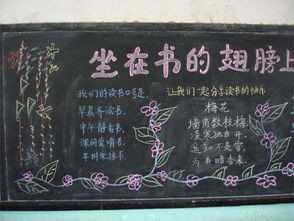 坐在书的翅膀上
我们的读书口号是
早晨齐读书,
中午静看书,
让我们一起分享读书的快乐
梅花
墙角数枝梅,
凌寒独自开,
遥知不是雪,
暗香来。